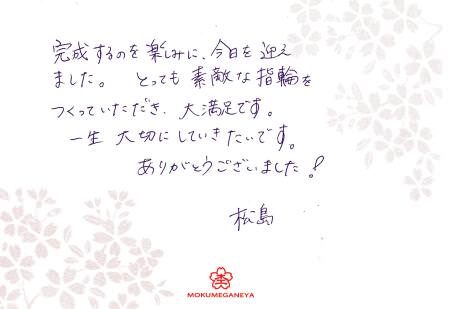 完成するのを楽しみに、今日を迎え
ました。 とっても素敵な指輪を
つくっていただき、大満足です。
一生大切にしていきたいです。
ありがとうございました!
松島
MOKUMEGANEYA